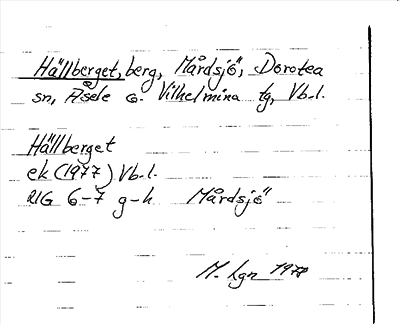 Hällberget, berg, Mårdsjö, Dorotea
sn, Åsele o. Vilhelmina tg, Vb.l.
Hällberget
ek (1977) Vb.l.
21G 6-7 g-h Mårdsjö
M. Lgn 1977